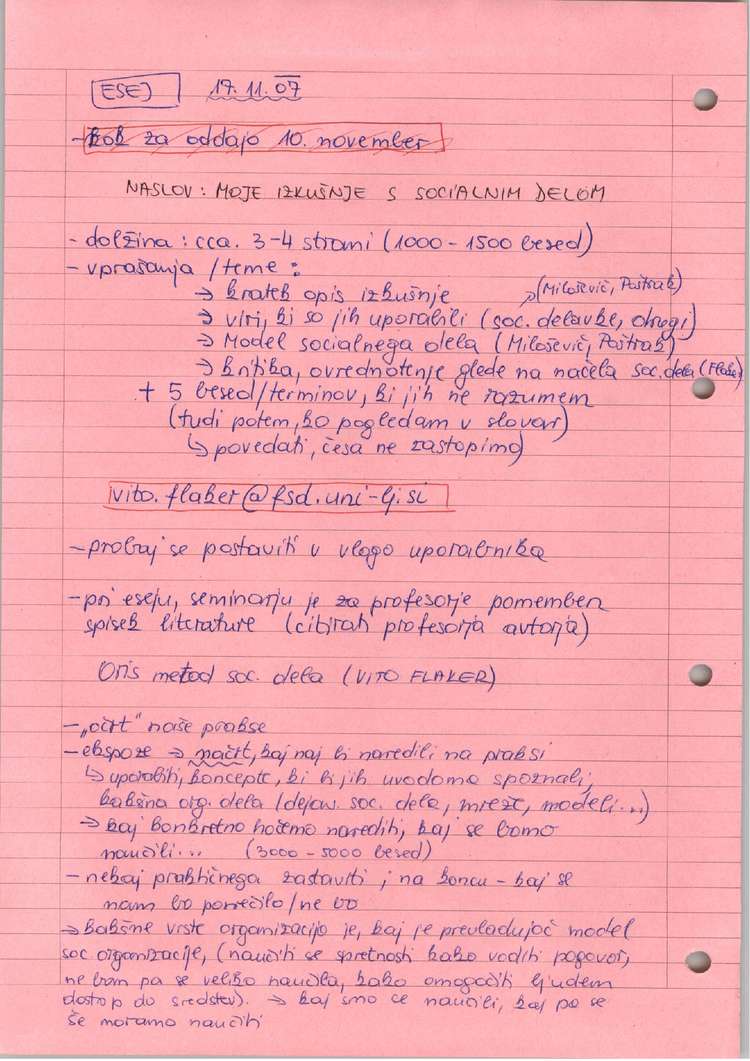 ESEJ 17.11.07
- Rok za oddajo 10. november
NASLOV: MOJE IZKUŠNJE S SOCIALNIM DELOM
- dolžina: cca. 3-4 strani (1000 - 1500 besed)
- vprašanja / teme:
→ kratek opis izkušnje → (Miloševič, Poštrak)
→ viri, ki so jih uporabili (soc. delavke, drugi)
→ Model socialnega dela (Miloševič, Poštrak)
→ kritika, ovrednotenje glede na načela soc. dela (Flaker)
+ 5 besed/terminov, ki jih ne razumem
(tudi potem, ko pogledam v slovar)
↳ povedati, česa ne zastopimo
vito.flaker@fsd.uni-lj.si
- probaj se postaviti v vlogo uporabnika
- pri eseju, seminarju je za profesorje pomemben
spisek literature (citirati profesorja avtorja)
Oris metod soc. dela (VITO FLAKER)
- „očrt" naše prakse
- ekspoze → načrt, kaj naj bi naredili na praksi
↳ uporabiti, koncepte, ki bi jih uvodoma spoznali,
kakšna org. dela (dejav. soc. dela, mreže, modeli...)
→ kaj konkretno hočemo narediti, kaj se bomo
naučili... (3000 - 5000 besed)
- nekaj praktičnega zastaviti; na koncu - kaj se
nam bo posrečilo/ne bo
→ kakšne vrste organizacijo je, kaj je prevladujoč model
soc. organizacije, (naučiti se spretnosti kako voditi pogovor,
ne bom pa se veliko naučila, kako omogočiti ljudem
dostop do sredstev). → kaj smo se naučili, kaj pa se
še moramo naučiti